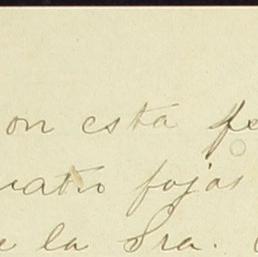 on esta fe
uatro fojas
e la Sra.